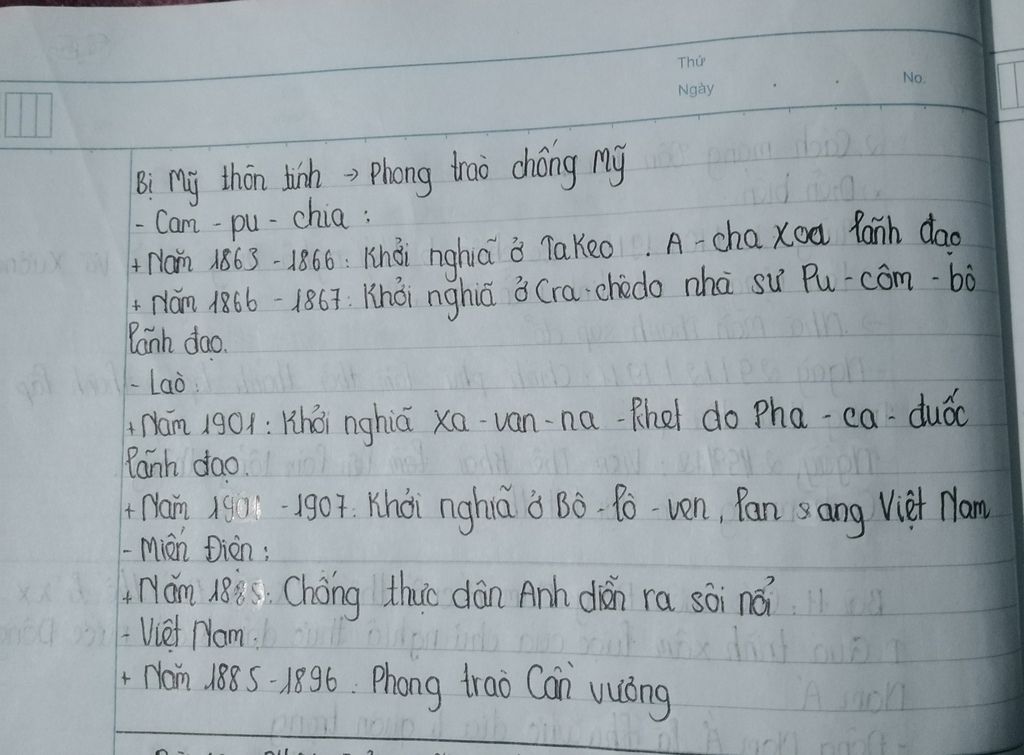 Thứ
Ngày . . No.
Bị Mỹ thôn tính → Phong trào chống Mỹ
- Cam - pu - chia :
+ Năm 1863 - 1866 : Khởi nghĩa ở Takeo . A - cha xoa lãnh đạo
+ Năm 1866 - 1867 : Khởi nghĩa ở Cra - chê do nhà sư Pu - côm - bô
lãnh đạo.
- Lào :
+ Năm 1901 : Khởi nghĩa Xa - van - na - khet do Pha - ca - đuốc
lãnh đạo.
+ Năm 1901 - 1907 : Khởi nghĩa ở Bô - lô - ven, lan sang Việt Nam
- Miến Điện :
+ Năm 1885 : Chống thực dân Anh diễn ra sôi nổi
- Việt Nam :
+ Năm 1885 - 1896 : Phong trào Cần vương